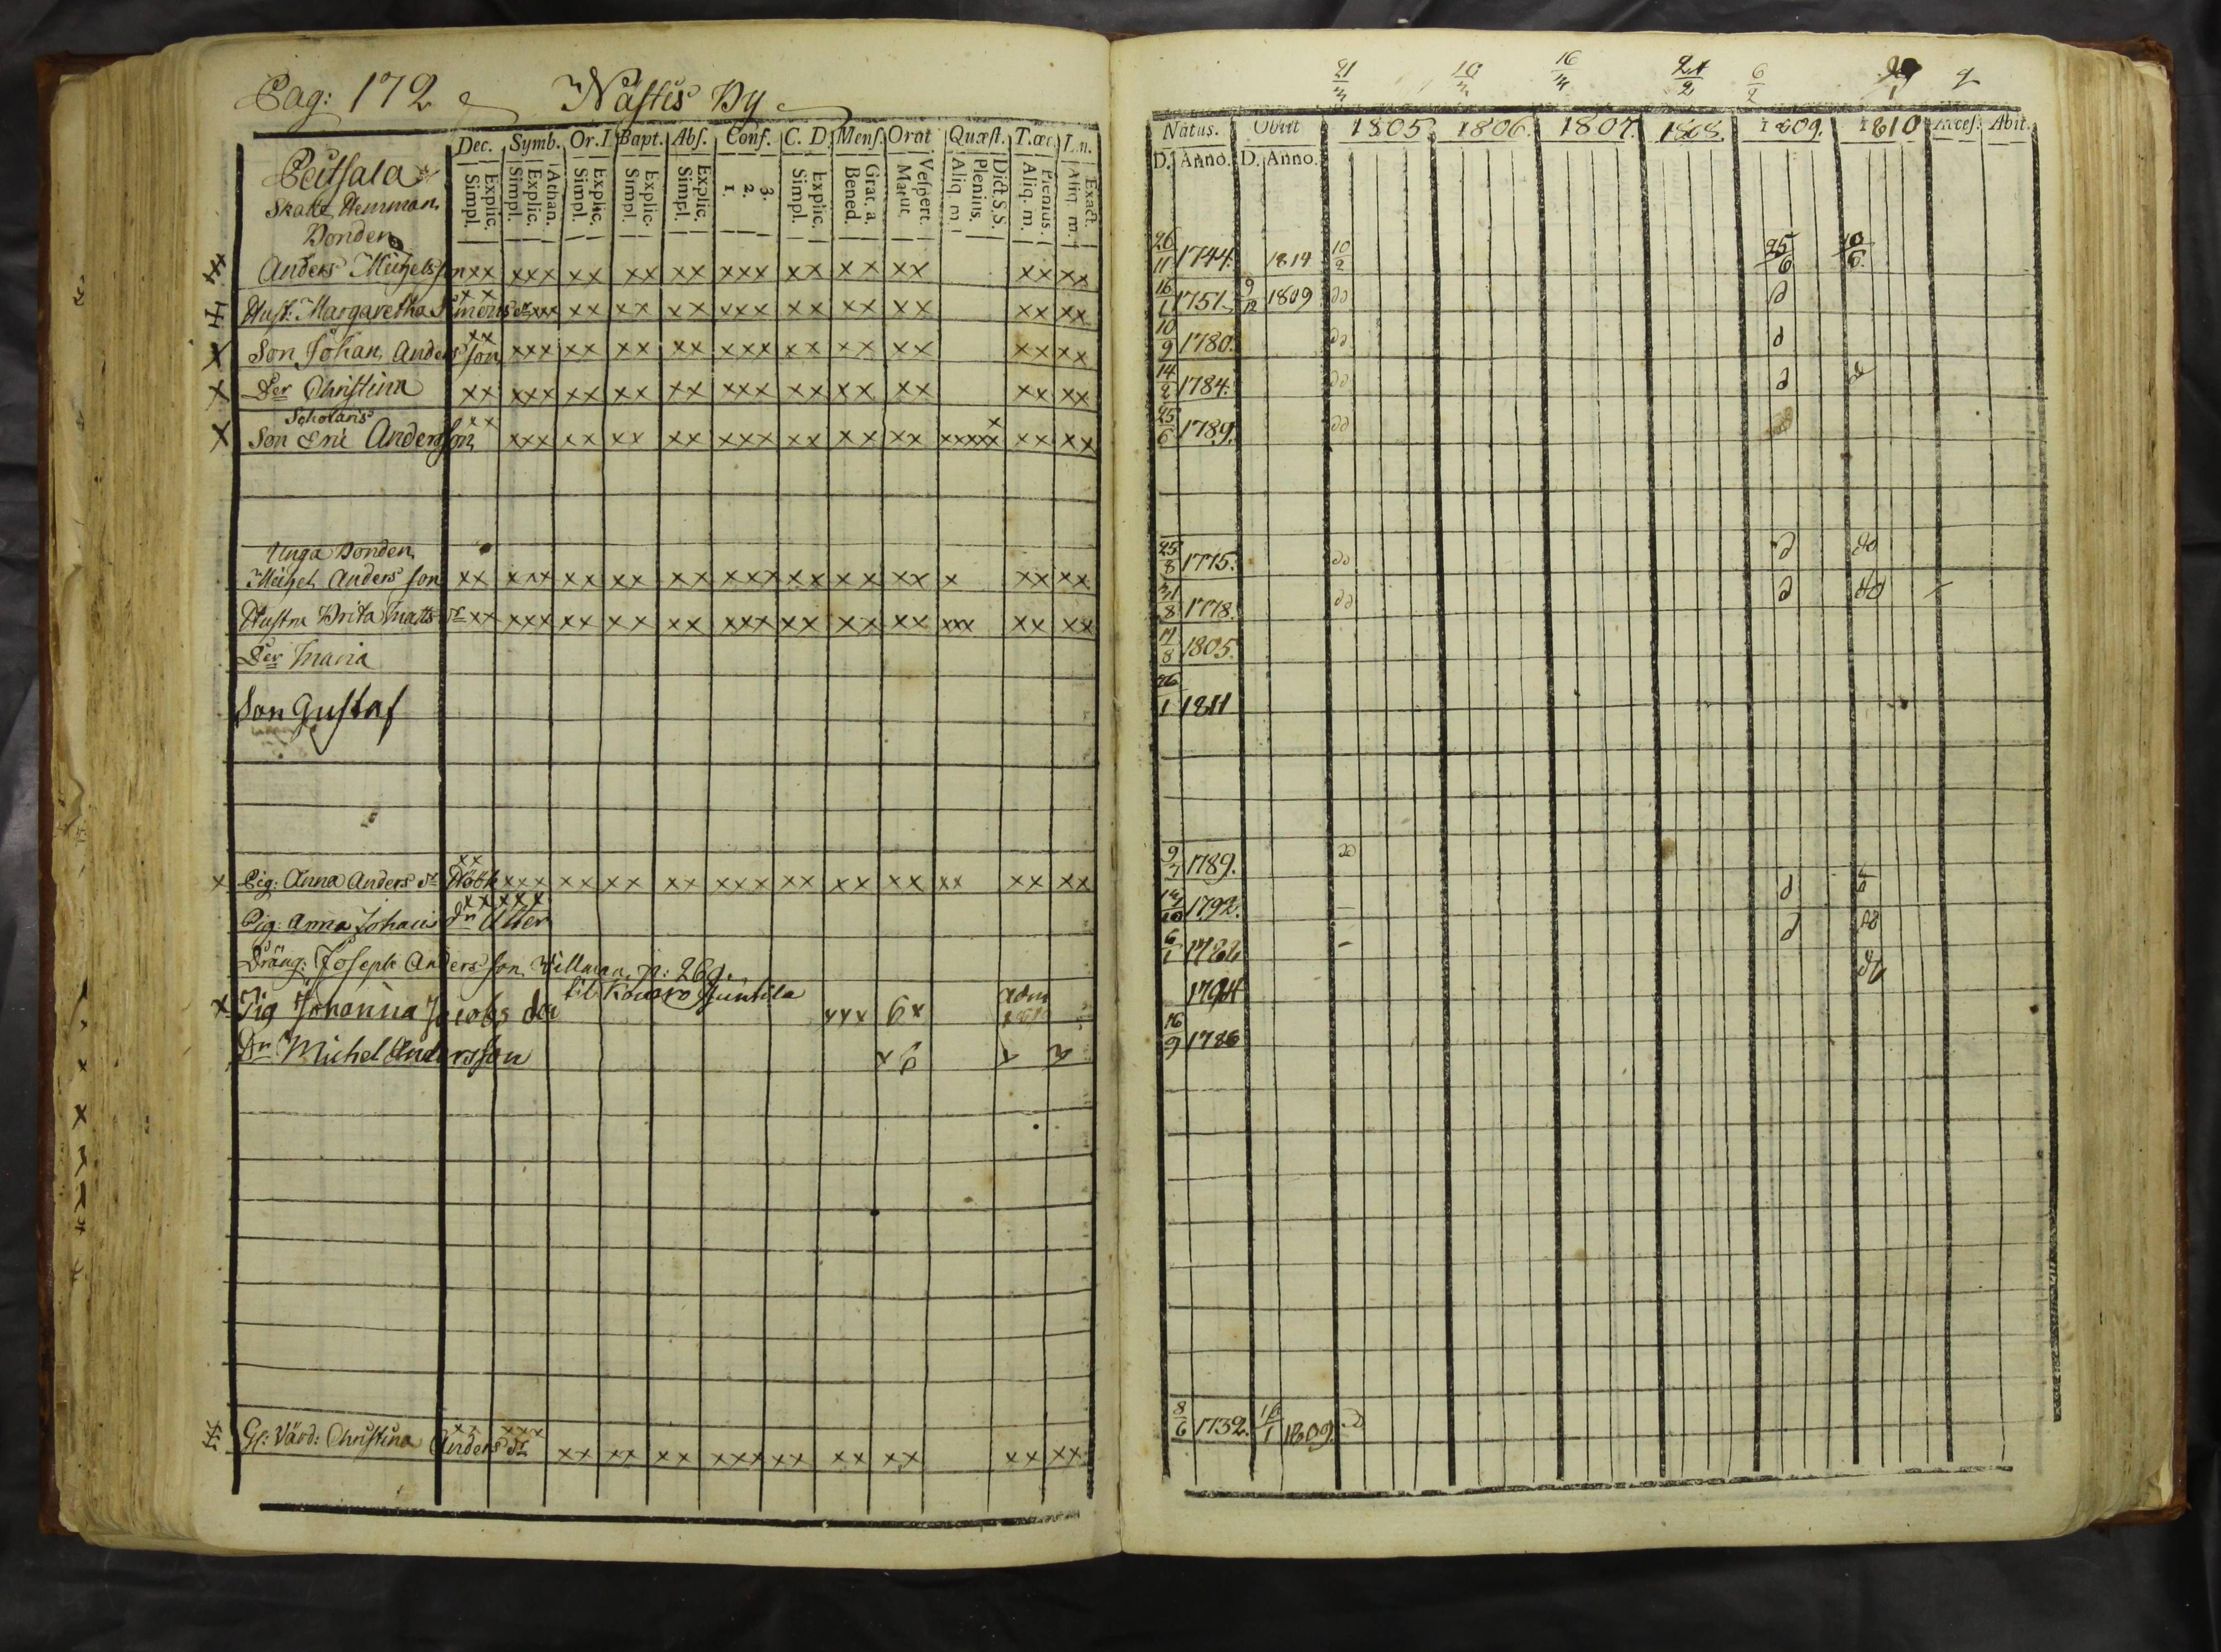 Pag: 172 Nästis By
Dec. Symb. Or. D. Bapt. Abs. Conf. C. D. Mens. Orat. Quæst. T. œc. L. n.
Explic. Simpl. Athan. Explic. Simpl. Explic. Simpl. Explic. Simpl. Explic. Simpl. 3. 2. 1. Explic. Simpl. Grat. a. Bened. Vespert. Matut. Dict. S.S. Plenius. Aliq. m. Plenius. Aliq. m. Exact. Aliq. m.
Peitsala
Skatte Hemman
Bonden
Anders Michelsson xx xxx xx xx xx xxx xx xx xx xx xx
Hust: Margaretha Simons dr xx xxx xx xx xx xxx xx xx xx xx xx
Son Johan Andersson xx xxx xx xx xx xxx xx xx xx xx xx
Der Christina xx xxx xx xx xx xxx xx xx xx xx xx
Scholaris
Son Eric Andersson xx xxx xx xx xx xxx xx xx xx xxxxx x xx xx
Unga Bonden
Michel Andersson xx xxx xx xx xx xxx xx xx xx x xx xx
Hustru Brita Matts dr xx xxx xx xx xx xxx xx xx xx xxx xx xx
Der Maria
Son Gustaf
Pig: Anna Anders dr Höök xx xxx xx xx xx xxx xx xx xx xx xx xx
Pig: Anna Johans dr xx xxx
Dräng: Joseph Andersson Willman p: 269.
Pig Johanna Jacobs der xxx 6x
Dn Michel Andersson x6
Gl: Värd: Christina Anders dr xx xxx xx xx xx xxx xx xx xx xx xx
21/3 10/3 16/3 21/2 6/2
Natus. Obiit 1805. 1806. 1807. 1808. 1809. 1810 Acces. Abit.
D. Anno. D. Anno.
26/11 1744. 1819 10/2 25/6 10/6
16/1 1751. 9/12 1809 do d
10/9 1780. do d
14/2 1784. do d
25/6 1789. do
25/8 1775. do d do
31/8 1778. do d do
17/8 1805.
26/1 1811
9/7 1789. do d
1792. d do
1794
16/9 1786
8/6 1732. 1809.